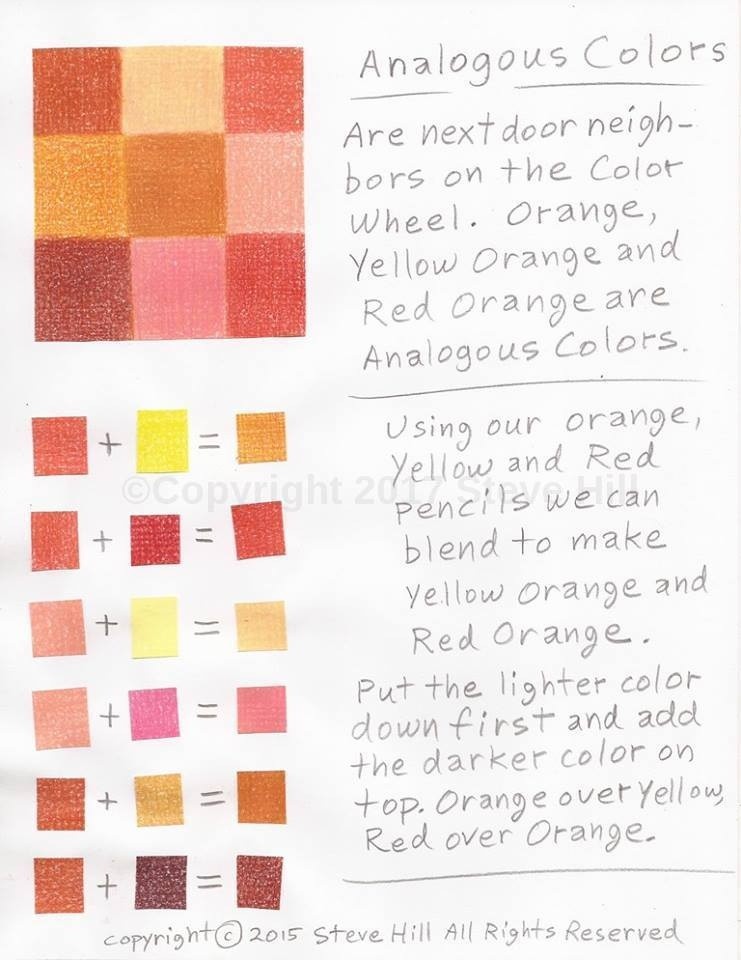 Analogous Colors
Are next door neigh-
bors on the Color
Wheel. Orange,
Yellow Orange and
Red Orange are
Analogous Colors.
Using our orange,
Yellow and Red
Pencils we can
blend to make
Yellow Orange and
Red Orange.
Put the lighter color
down first and add
the darker color on
top. Orange over Yellow,
Red over Orange.
+ =
+ =
+ =
+ =
+ =
+ =
©Copyright 2017 Steve Hill
copyright © 2015 Steve Hill All Rights Reserved